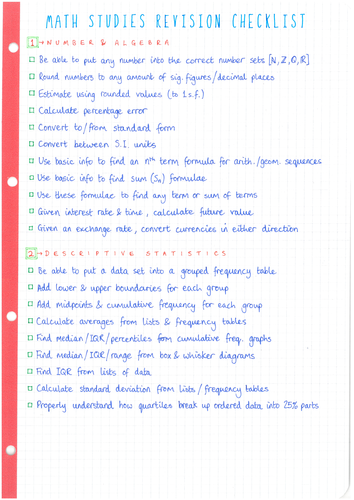 MATH STUDIES REVISION CHECKLIST
1 → NUMBER & ALGEBRA
Be able to put any number into the correct number sets [ℕ, ℤ, ℚ, ℝ]
Round numbers to any amount of sig. figures/decimal places
Estimate using rounded values (to 1 s.f.)
Calculate percentage error
Convert to/from standard form
Convert between S.I. units
Use basic info to find an nᵗʰ term formula for arith./geom. sequences
Use basic info to find sum (Sₙ) formulae
Use these formulae to find any term or sum of terms
Given interest rate & time, calculate future value
Given an exchange rate, convert currencies in either direction
2 → DESCRIPTIVE STATISTICS
Be able to put a data set into a grouped frequency table
Add lower & upper boundaries for each group
Add midpoints & cumulative frequency for each group
Calculate averages from lists & frequency tables
Find median/IQR/percentiles from cumulative freq. graphs
Find median/IQR/range from box & whisker diagrams
Find IQR from lists of data
Calculate standard deviation from lists/frequency tables
Properly understand how quartiles break up ordered data into 25% parts